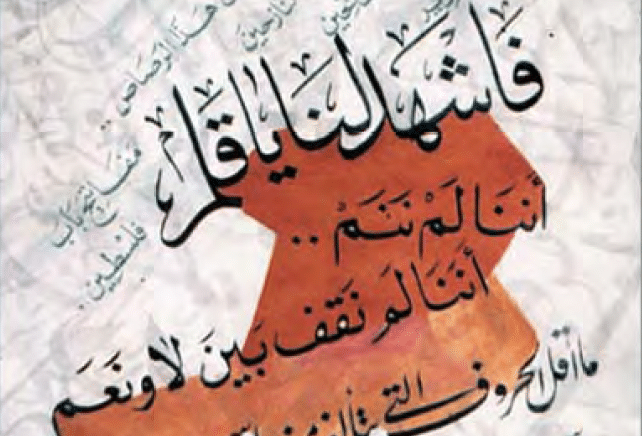 هذا الرصاص ..
مفتاح باب
فلسطين .
فاشهد لنا يا قلم
أننا لم ننم ..
أننا لم نقف بين لا ونعم
ما أقل الحروف التي